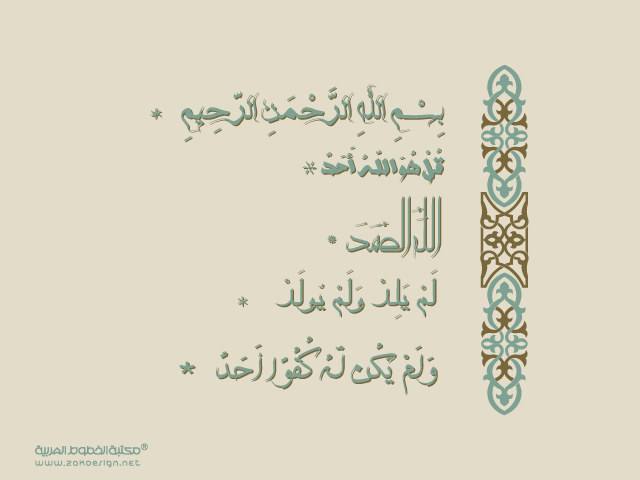 بِسْمِ اللَّهِ الرَّحْمَنِ الرَّحِيمِ *
قُلْ هُوَ اللَّهُ أَحَدٌ *
اللَّهُ الصَّمَدُ *
لَمْ يَلِدْ وَلَمْ يُولَدْ *
وَلَمْ يَكُن لَّهُ كُفُوًا أَحَدٌ *
مكتبة الخطوط العربية®
www.zakdesign.net